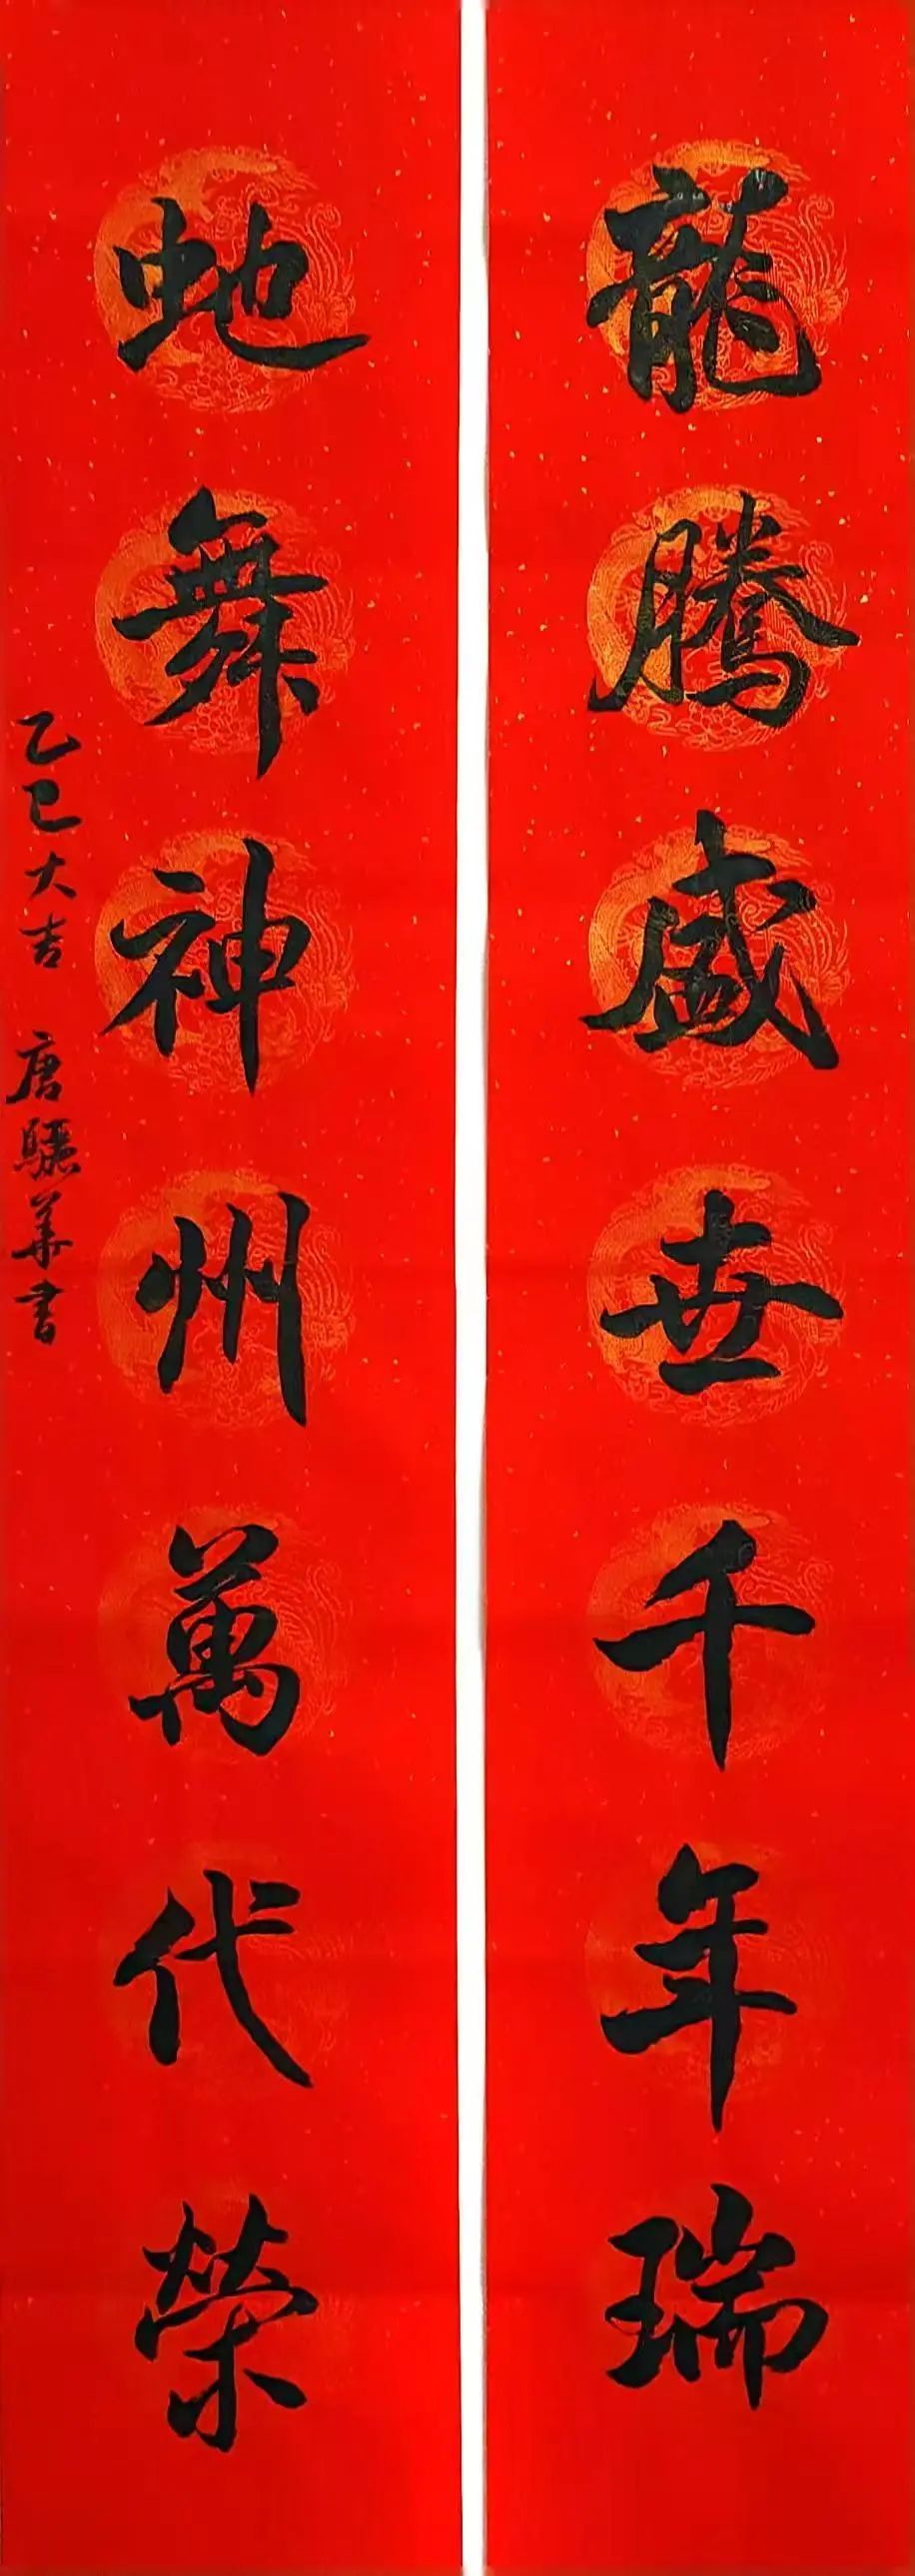 龍騰盛世千年瑞
虵舞神州萬代榮
乙巳大吉 唐驪華書